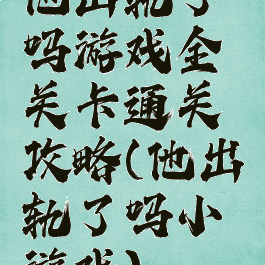 他出轨了
吗游戏全
关卡通关
攻略(他出
轨了吗小
游戏)